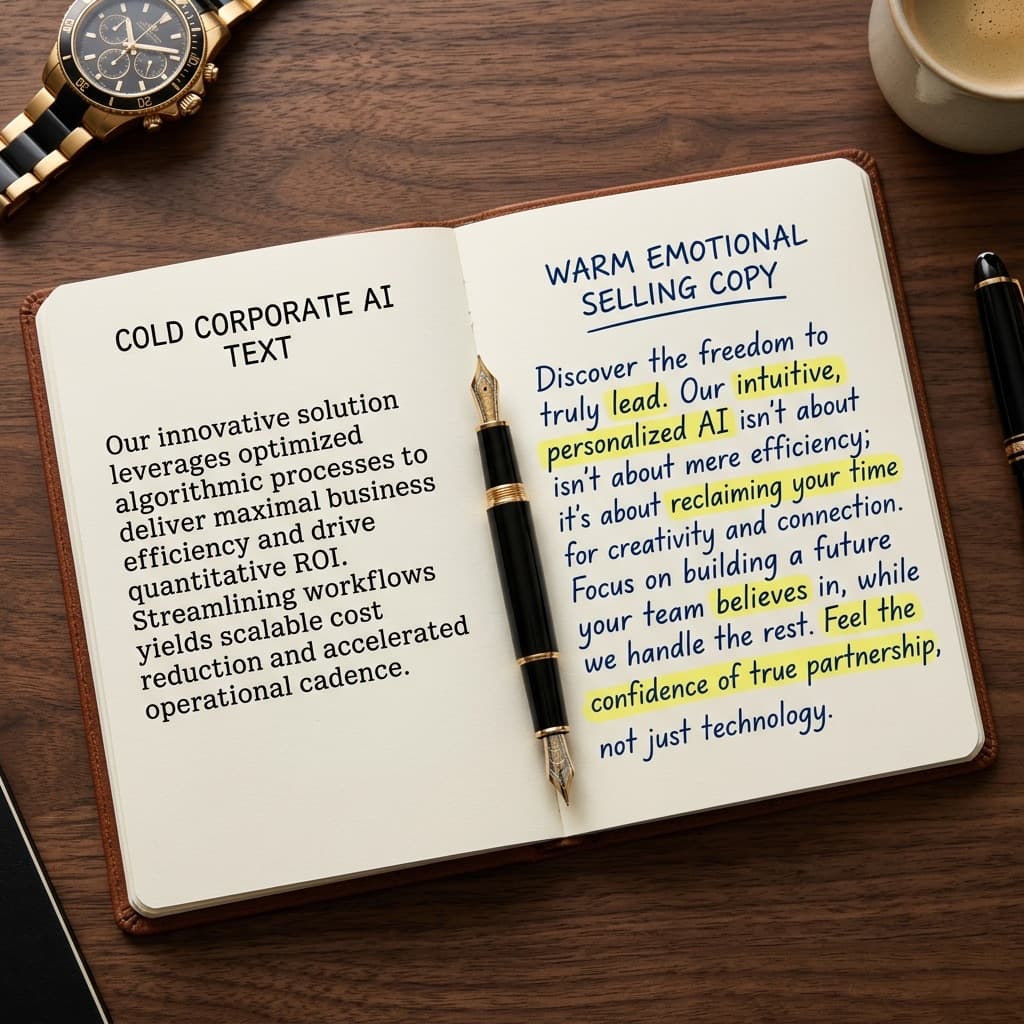 COLD CORPORATE AI
TEXT
Our innovative solution
leverages optimized
algorithmic processes to
deliver maximal business
efficiency and drive
quantitative ROI.
Streamlining workflows
yields scalable cost
reduction and accelerated
operational cadence.
WARM EMOTIONAL
SELLING COPY
Discover the freedom to
truly lead. Our intuitive,
personalized AI isn't about
isn't about mere efficiency;
it's about reclaiming your time
for creativity and connection.
Focus on building a future
your team believes in, while
we handle the rest. Feel the
confidence of true partnership,
not just technology.